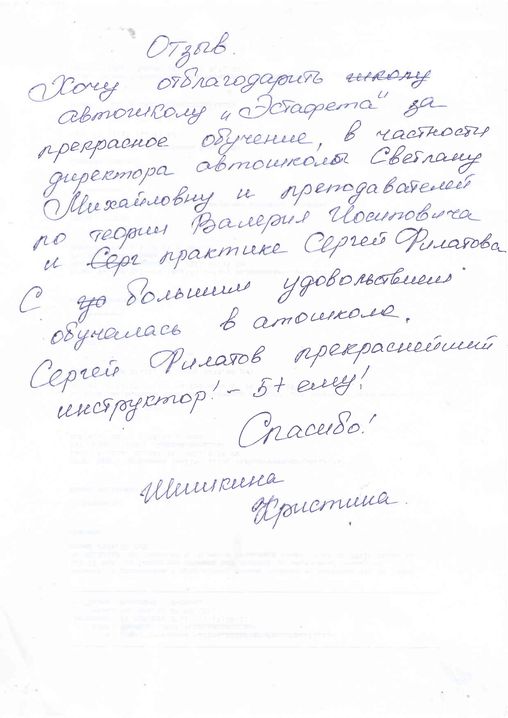 Отзыв.
Хочу отблагодарить школу
автошколу „Эстафета“ за
прекрасное обучение, в частности
директора автошколы Светлану
Михайловну и преподавателей
по теории Валерия Иосиповича
и Серг практике Сергей Филатова
С уо большим удовольствием
обучалась в атошколе.
Сергей Филатов прекраснейший
инструктор! – 5+ ему!
Спасибо!
Шишкина
Кристина.